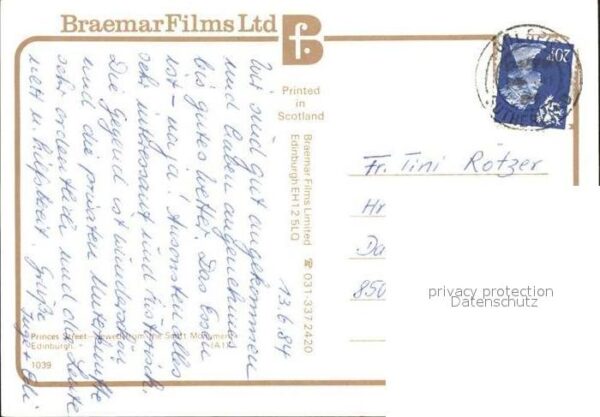 Braemar Films Ltd
bf.
Printed
in
Scotland
Braemar Films Limited
Edinburgh EH12 5LQ
☎ 031-337 2420
20P
13.6.84
Wir sind gut angekommen
und haben angenehmes
bis gutes Wetter. Das Essen
ist - naja! Ansonsten alles
sehr interessant und historisch.
Die Gegend ist wunderschön
und die privaten Unterkünfte
sehr ordentlich und die Leute
nett u. hilfsbereit. Grüße
Fr. Tini Rotzer
Hr
Da
850
privacy protection
Datenschutz
Princes Street from the Scott Monument,
Edinburgh. (A1)
1039